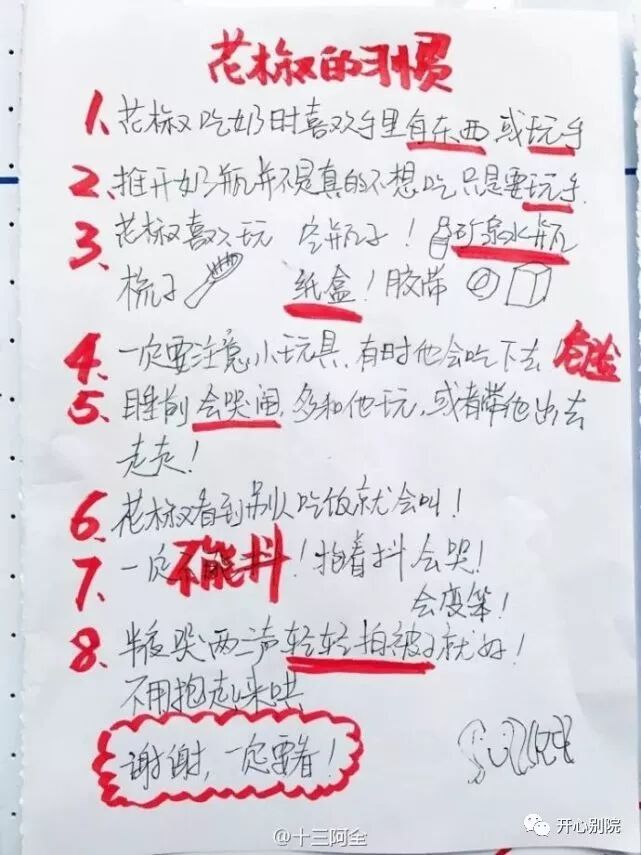 花椒的习惯
1. 花椒吃奶时喜欢手里有东西或玩手
2. 推开奶瓶并不是真的不想吃只是要玩手.
3. 花椒喜欢玩 空瓶子! 矿泉水瓶
梳子 纸盒! 胶带
4. 一定要注意小玩具,有时他会吃下去 危险
5. 睡前会哭闹,多和他玩,或者带他出去
走走!
6. 花椒看到别人吃饭就会叫!
7. 一定不能抖! 抱着抖会哭!
会变笨!
8. 半夜哭两三声轻轻拍被子就好!
不用抱起来哄
谢谢,一定要看!
@十三阿全
开心别院